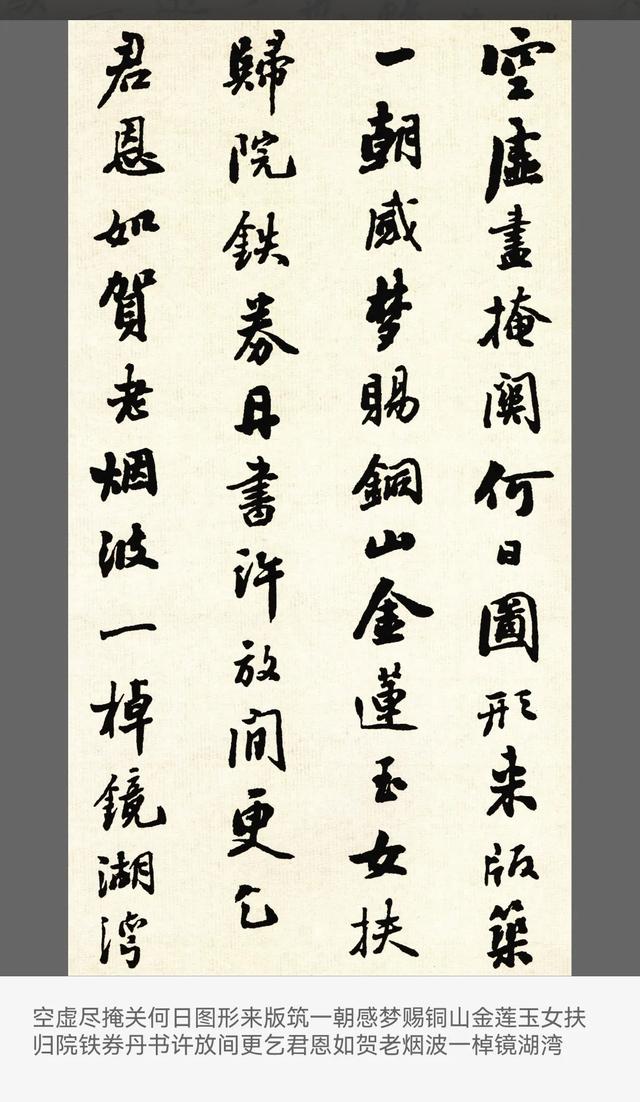 空虛盡掩關何日圖形来版築
一朝感梦賜銅山金蓮玉女扶
歸院鉄券丹書許放间更乞
君恩如賀老烟波一棹鏡湖湾
空虚尽掩关何日图形来版筑一朝感梦赐铜山金莲玉女扶
归院铁券丹书许放间更乞君恩如贺老烟波一棹镜湖湾